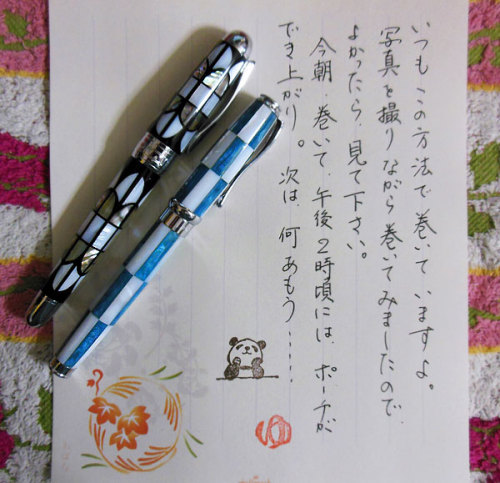 いつもこの方法で巻いていますよ。
写真を撮りながら巻いてみましたので、
よかったら、見て下さい。
今朝、巻いて、午後2時頃には、ポーチが
でき上がり。次は、何あもう‥‥‥
ゆ